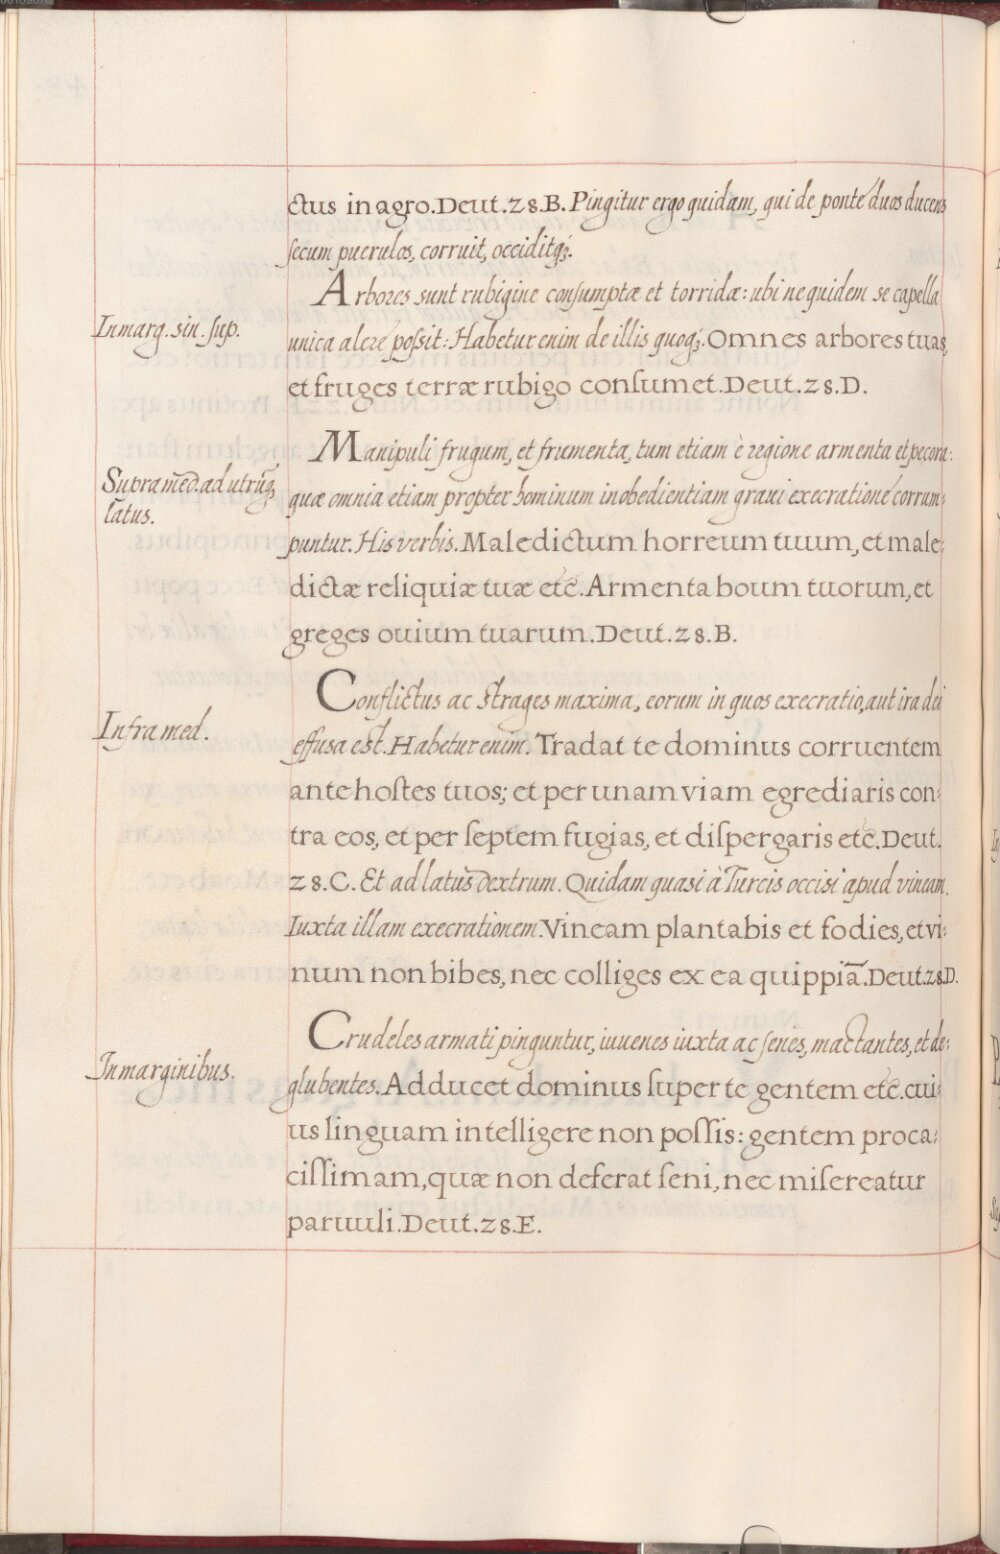 ctus in agro. Deut. 28. B. Pingitur ergo quidam, qui de ponte duos ducens
ſecum puerulos, corruit, occiditq́;.
Arbores sunt rubigine conſumptæ et torridæ: ubi ne quidem se capella
In marg. sin. ſup.
unica alere poſsit: Habetur enim de illis quoq;. Omnes arbores tuas,
et fruges terræ rubigo conſumet. Deut. 28. D.
Manipuli frugum, et frumenta, tum etiam è regione armenta et pecora:
Supra med. ad utrūq;
latus.
quæ omnia etiam propter hominum inobedientiam graui execratione corrum-
puntur. His verbis. Maledictum horreum tuum, et male-
dictæ reliquiæ tuæ etc̄. Armenta boum tuorum, et
greges ouium tuarum. Deut. 28. B.
Conflictus ac strages maxima, eorum in quos execratio, aut ira dei
Infra med.
effusa est. Habetur enim. Tradat te dominus corruentem
ante hoſtes tuos; et per unam viam egrediaris con-
tra eos, et per ſeptem fugias, et diſpergaris etc̄. Deut.
28. C. Et ad latus dextrum. Quidam quasi à Turcis occisi apud vineam.
Iuxta illam execrationem. Vineam plantabis et fodies, et vi-
num non bibes, nec colliges ex ea quippiā. Deut. 28. D.
Crudeles armati pinguntur, iuuenes iuxta ac ſenes, mactantes, et de-
In marginibus.
glubentes. Adducet dominus ſuper te gentem etc̄. cui-
us linguam intelligere non poſſis: gentem proca-
ciſſimam, quæ non deferat ſeni, nec miſereatur
paruuli. Deut. 28. E.